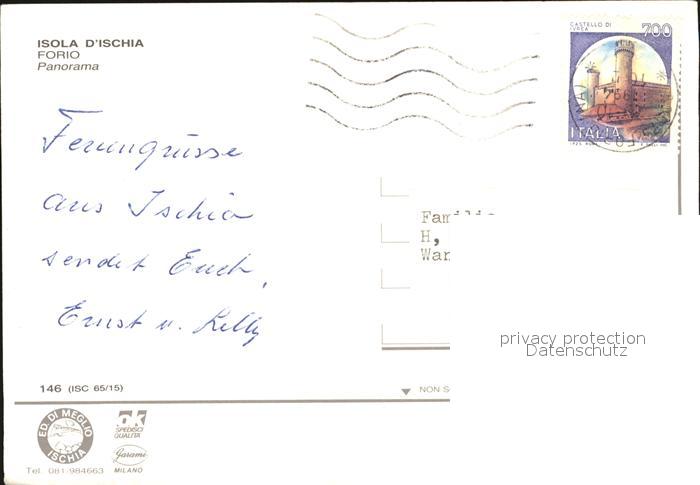 ISOLA D'ISCHIA
FORIO
Panorama
CASTELLO DI
IVREA
700
ITALIA
Feriengrüsse
aus Ischia
sendet Euch,
Ernst u. Lilly
Familie
H,
War
privacy protection
Datenschutz
146 (ISC 65/15)
NON S
ED. DI MEGLIO
ISCHIA
OK
SPEDISCI
QUALITÀ
Garami
MILANO
Tel. 081/984663